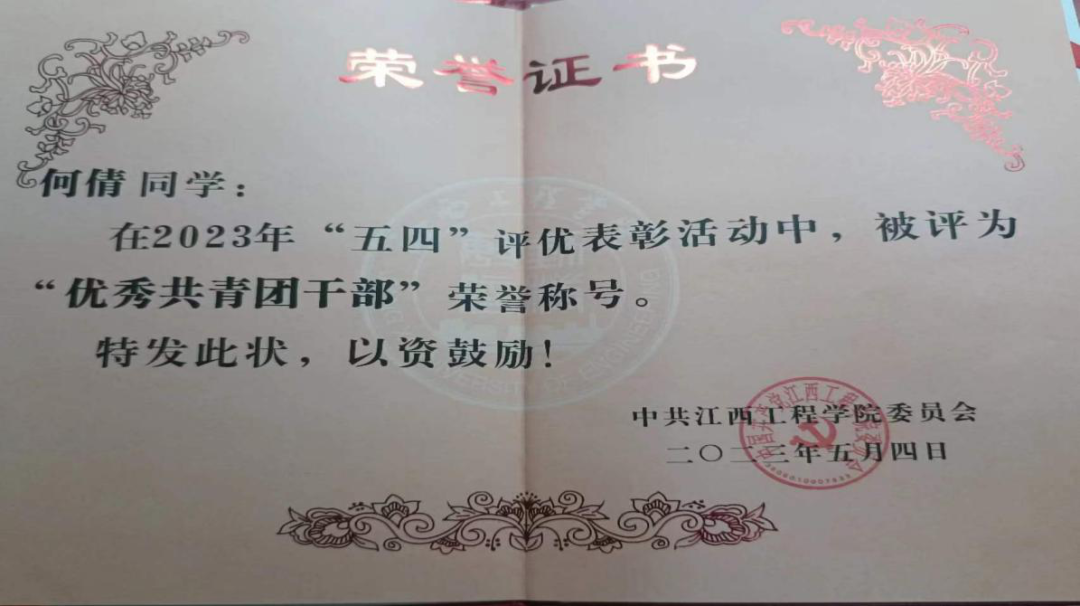 荣誉证书
何倩 同学：
在2023年“五四”评优表彰活动中，被评为
“优秀共青团干部”荣誉称号。
特发此状，以资鼓励！
中共江西工程学院委员会
二〇二三年五月四日